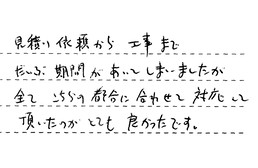 見積り依頼から 工事まで
だいぶ 期間があいてしまいましたが
全て こちらの都合に合わせて 対応して
頂いたのが とても 良かったです。